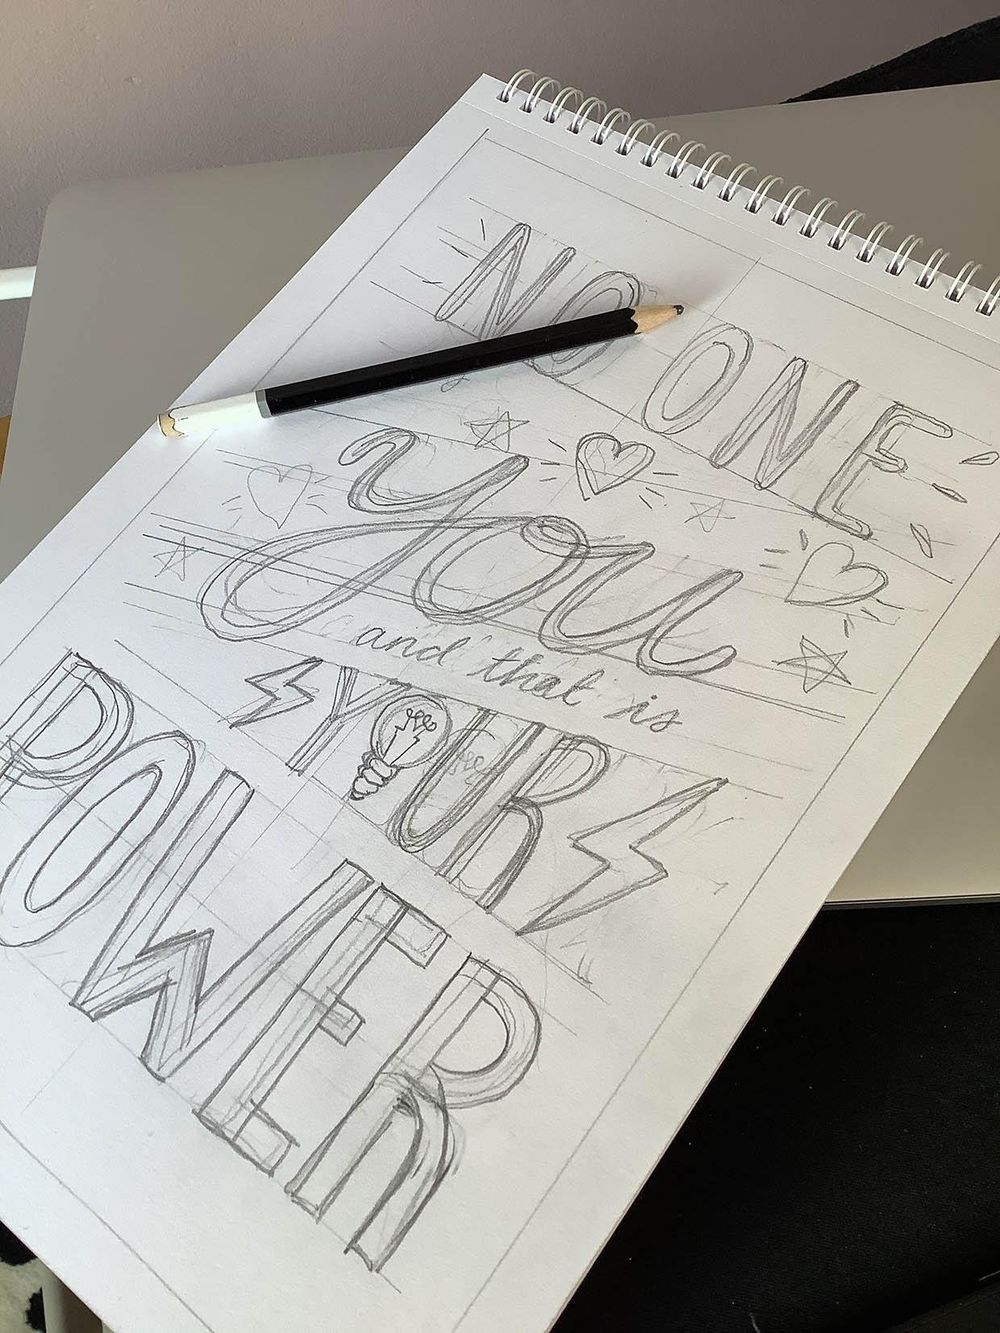 NO ONE
you
and that is
YOUR
POWER